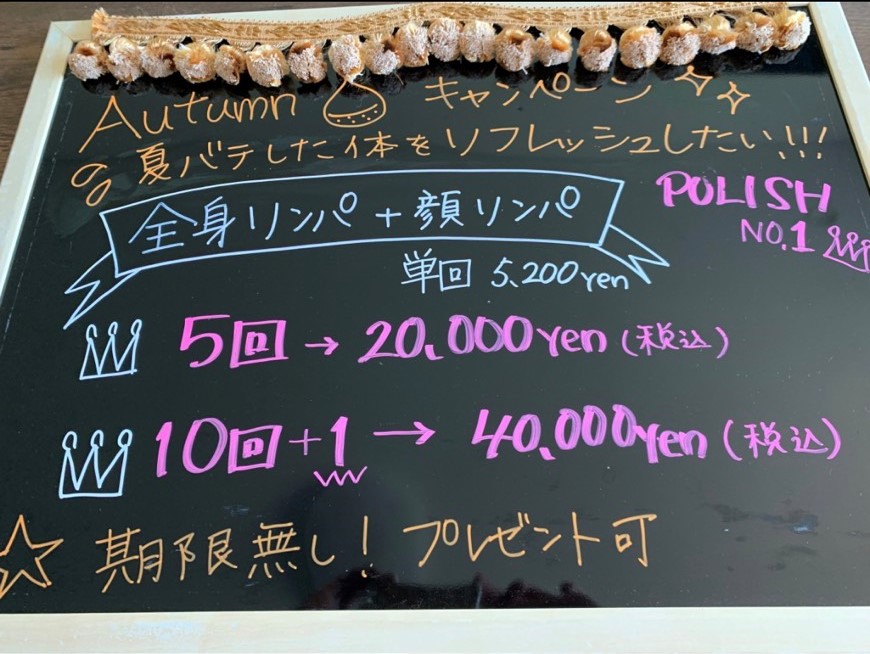 Autumn キャンペーン
夏バテした体をリフレッシュしたい!!!
全身リンパ+顔リンパ
POLISH
NO.1
単回 5,200yen
5回→20,000yen(税込)
10回+1→40,000yen(税込)
期限無し!プレゼント可